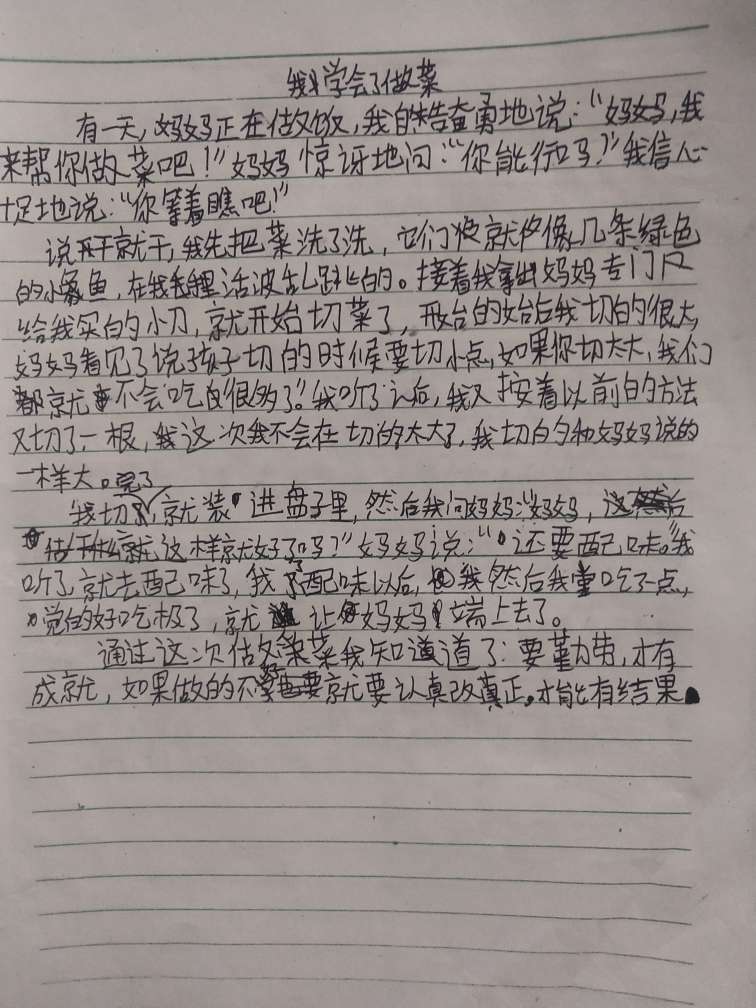 我学会了做菜
有一天，妈妈正在做饭，我自告奋勇地说：“妈妈，我
来帮你做菜吧！”妈妈惊讶地问：“你能行吗？”我信心
十足地说：“你等着瞧吧！”
说干就干，我先把菜洗了洗，它们就像几条绿色
的小鱼，在我手里活波乱跳的。接着我拿出妈妈专门
给我买的小刀，就开始切菜了，开始的始后我切的很大，
妈妈看见了说孩子切的时候要切小点，如果你切太大，我们
都就不会吃的很多了。”我听了以后，我又按着以前的方法
又切了一根，我这次我不会在切的太大了，我切的和妈妈说的
一样大。
我切完了，就装进盘子里，然后我问妈妈：“妈妈，
这样就好了吗？”妈妈说：“还要配味。”我
听了就去配味了，我配味以后，我然后我尝吃了一点，
觉的好吃极了，就让妈妈端上去了。
通过这次做菜我知道道了：要勤劳，才有
成就，如果做的不好就要认真改真正。才能有结果。